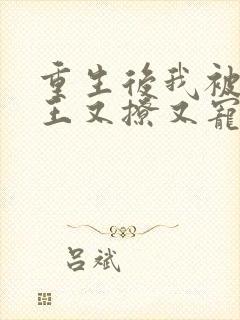 重生後我被
王又撩又寵
呂斌